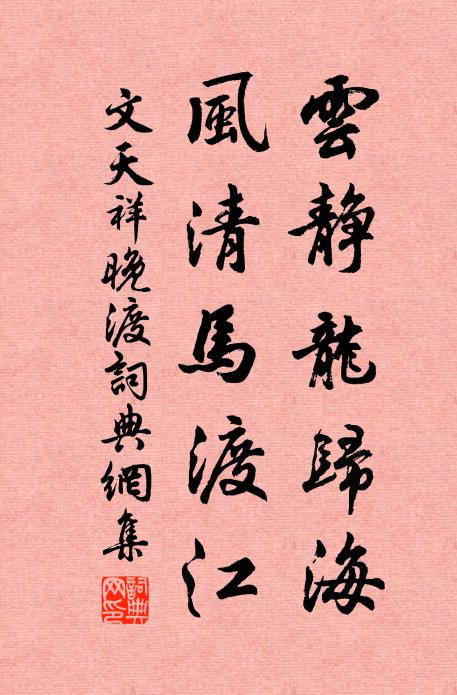 雲静龍歸海
風清馬渡江
文天祥晚渡詞典網集
詞典网印